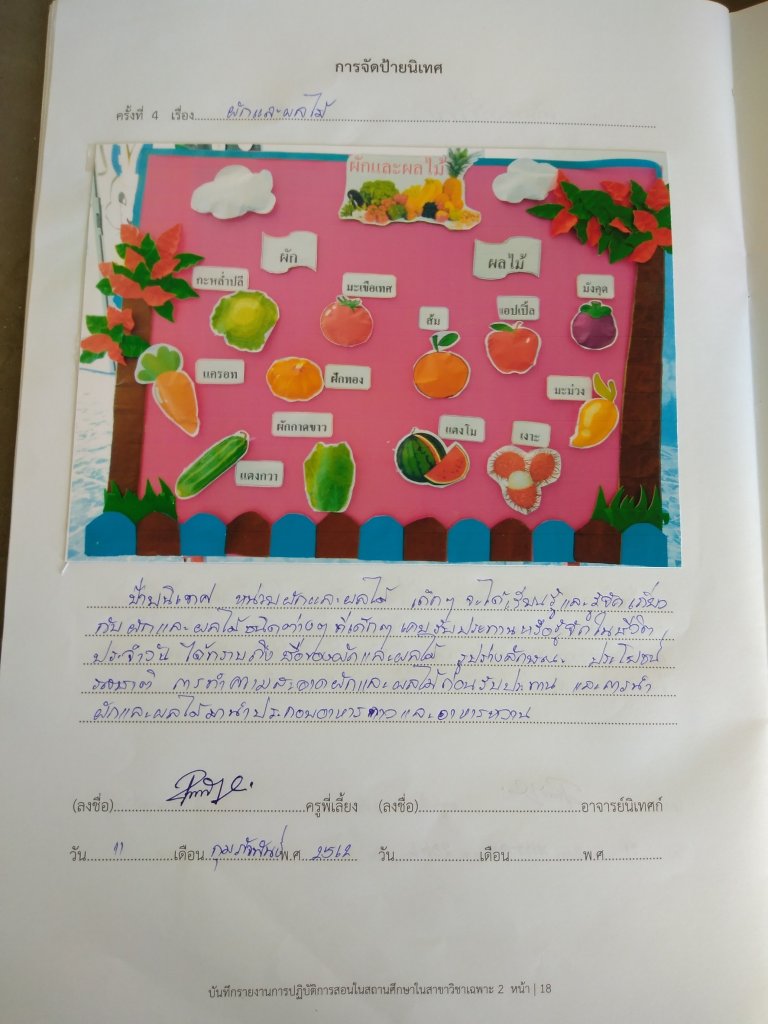 การจัดป้ายนิเทศ
ครั้งที่ 4 เรื่อง ผักและผลไม้
ผักและผลไม้
ผัก
ผลไม้
กะหล่ำปลี
มะเขือเทศ
ส้ม
แอปเปิ้ล
มังคุด
แครอท
ฝักทอง
มะม่วง
ผักกาดขาว
แตงโม
เงาะ
แตงกวา
ป้ายนิเทศ หน่วยผักและผลไม้ เด็กๆ จะได้เรียนรู้และรู้จักเกี่ยว
กับผักและผลไม้ชนิดต่างๆ ที่เด็กๆ เคยรับประทานหรือรู้จักในชีวิต
ประจำวัน ได้ทราบถึงชื่อของผักและผลไม้ รูปร่างลักษณะ ประโยชน์
รสชาติ การทำความสะอาดผักและผลไม้ก่อนรับประทาน และการนำ
ผักและผลไม้มานำประกอบอาหารคาวและอาหารหวาน
(ลงชื่อ) ครูพี่เลี้ยง (ลงชื่อ) อาจารย์นิเทศก์
วัน 11 เดือน กุมภาพันธ์ พ.ศ. 2562 วัน เดือน พ.ศ.
บันทึกรายงานการปฏิบัติการสอนในสถานศึกษาในสาขาวิชาเฉพาะ 2 หน้า | 18